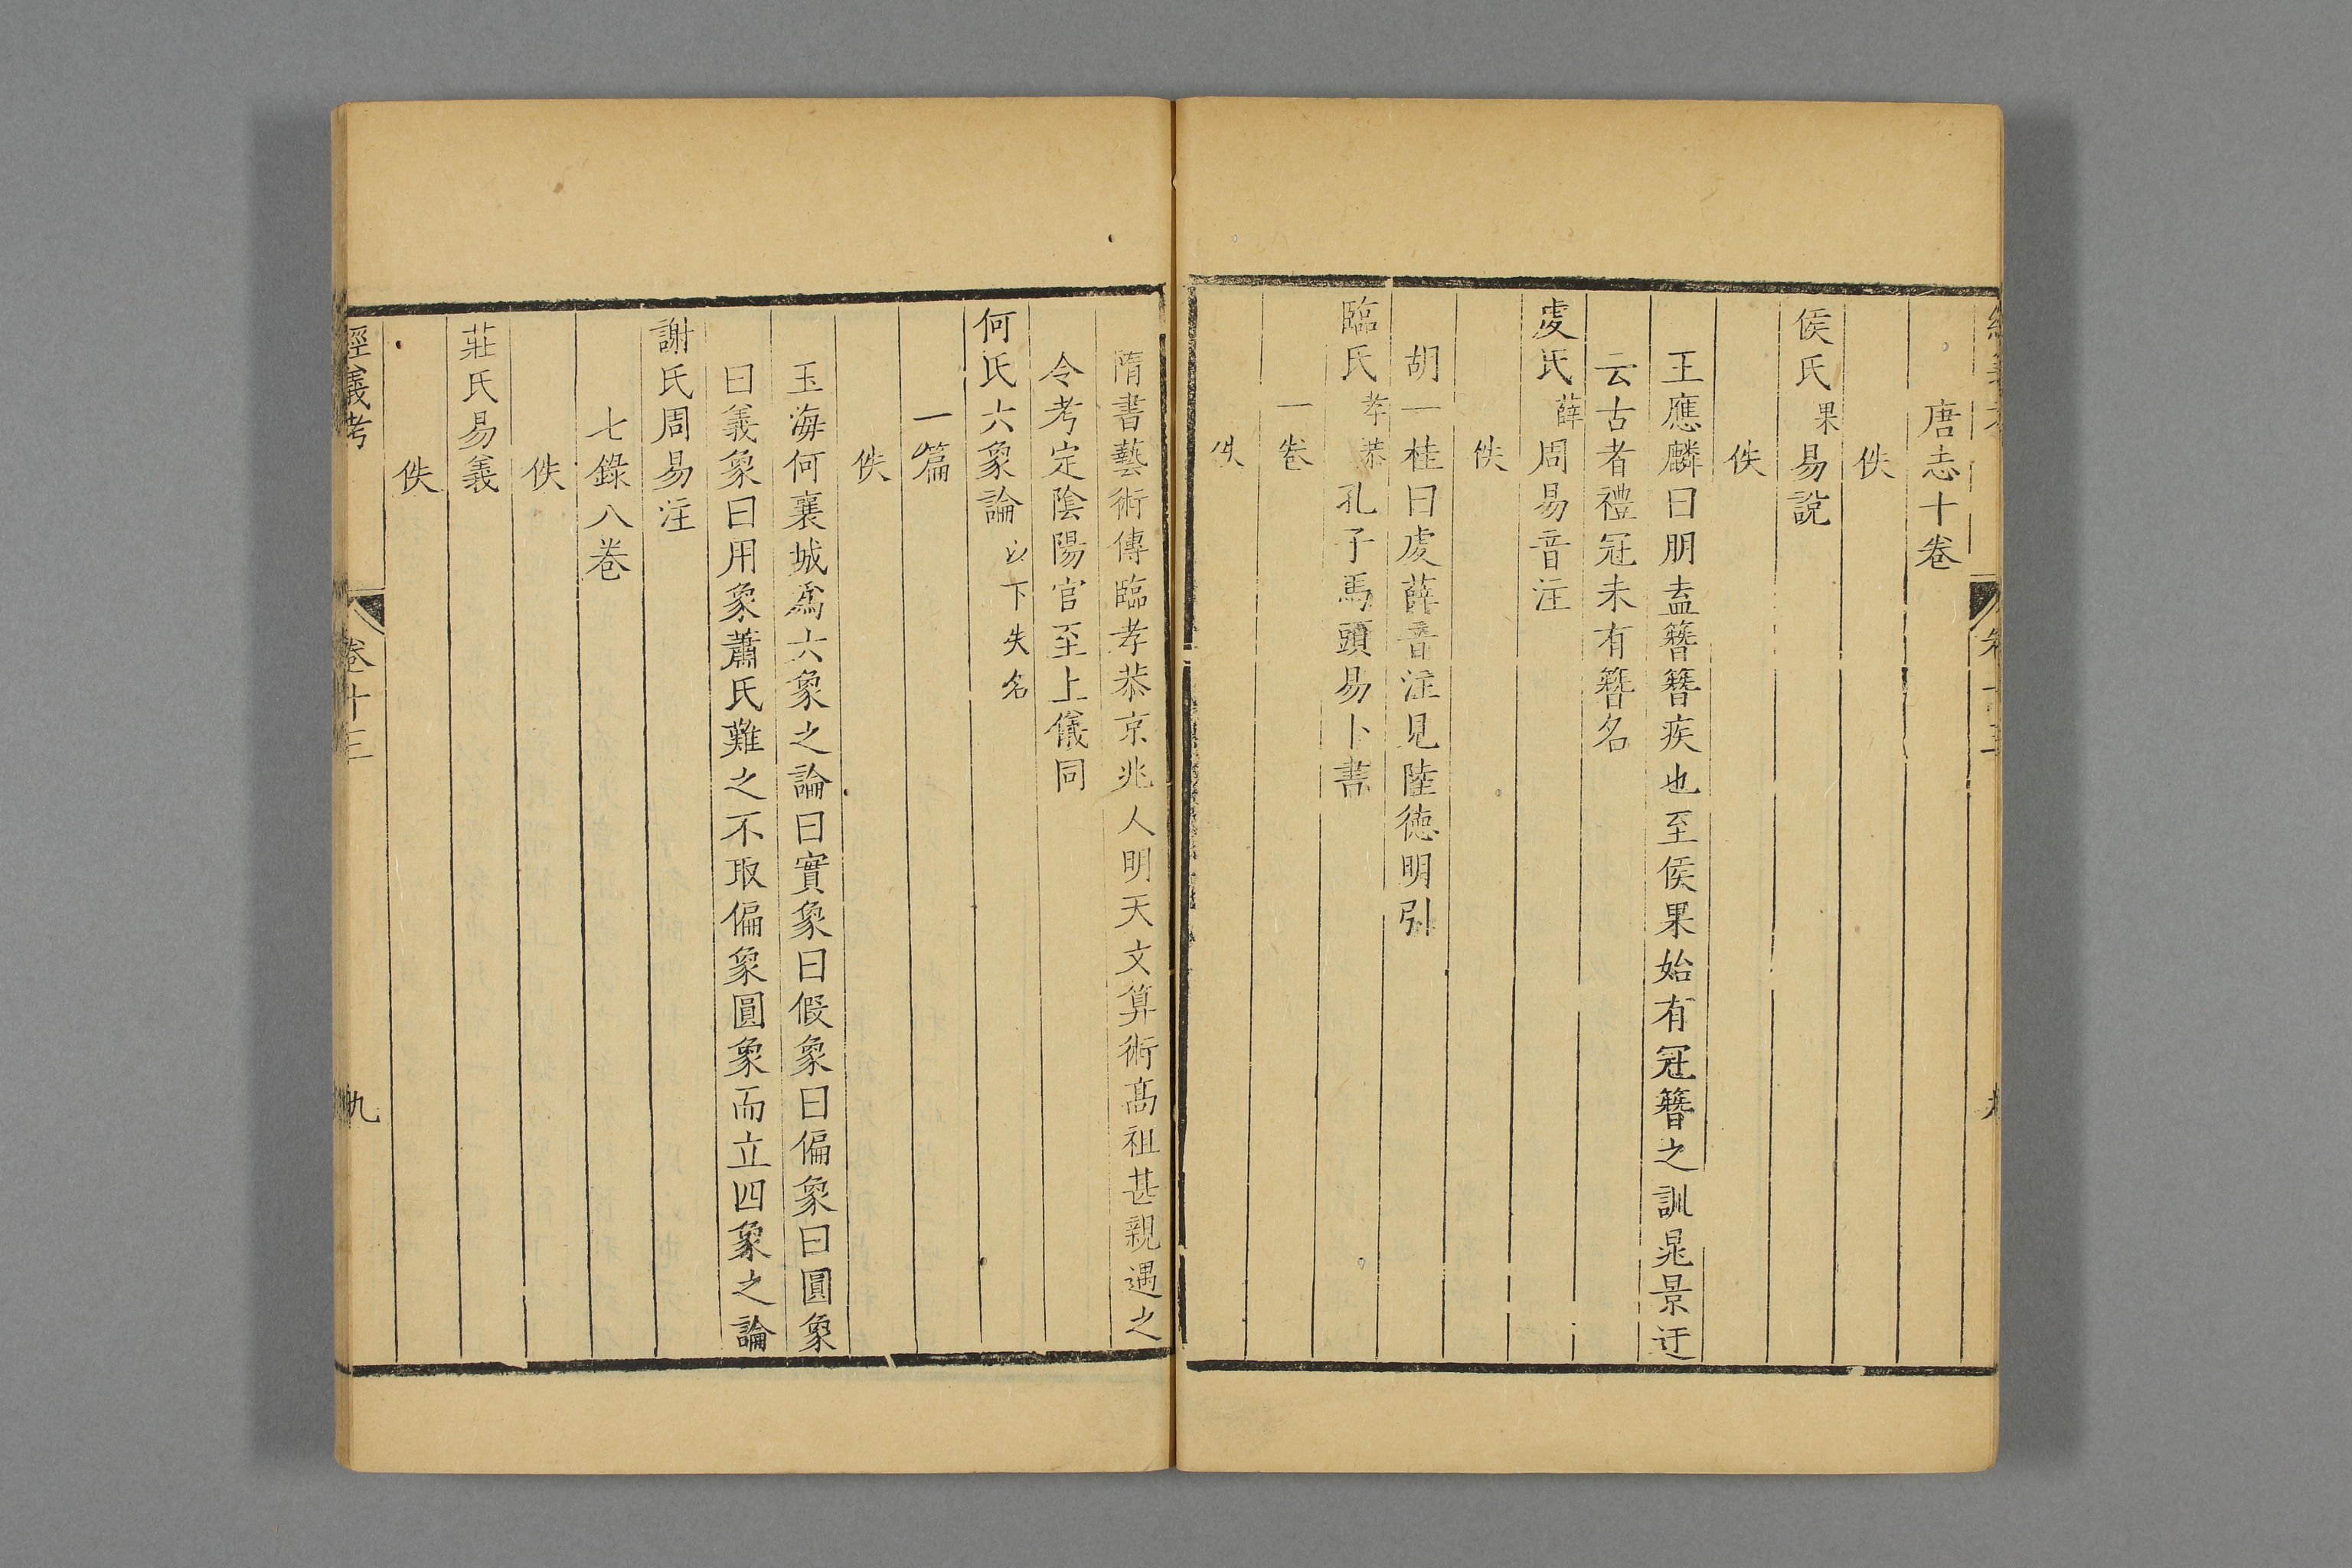 唐志十卷
佚
侯氏果易說
佚
王應麟曰朋盍簪簪疾也至侯果始有冠簪之訓晁景迂
云古者禮冠未有簪名
䖍氏薛周易音注
佚
胡一桂曰䖍薛音注見陸德明引
臨氏孝恭孔子馬頭易卜書
一卷
佚
隋書藝術傳臨孝恭京兆人明天文算術髙祖甚親遇之
令考定陰陽官至上儀同
何氏六象論以下失名
一篇
佚
玉海何襄城爲六象之論曰實象曰假象曰偏象曰圓象
曰義象曰用象蕭氏難之不取偏象圓象而立四象之論
謝氏周易注
七錄八卷
佚
莊氏易義
佚
經義考 卷十三 九